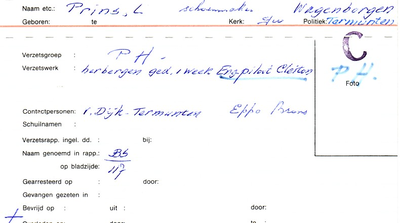 Naam etc.: Prins, L schoenmaker Wagenborgen
Geboren: te Kerk: Politiek: Termunten
C
Verzetsgroep : P.H.
Verzetswerk : herbergen ged. 1 week
P.H.
Foto
Contractpersonen: v. Dijk-Termunten Eppo
Schuilnaam :
Verzetsrapp. ingel. dd. : bij:
Naam genoemd in rapp.: BS
op bladzijde: 117
Gearresteerd op : door:
Gevangen gezeten in :
Bevrijd op : uit : door:
+